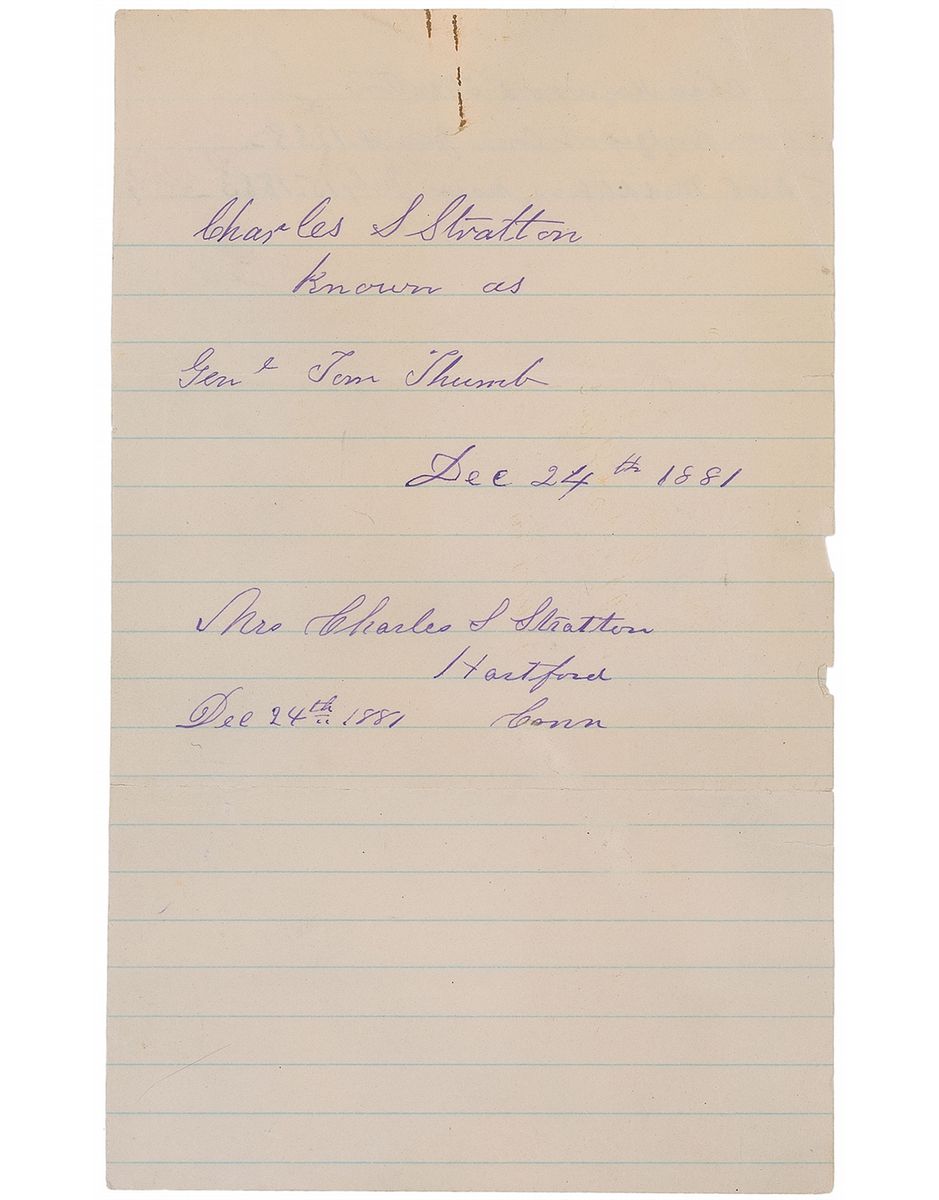 Charles S Stratton
Known as
Genl Tom Thumb
Dec 24th 1881
Mrs Charles S Stratton
Hartford
Dec 24th 1881 Conn